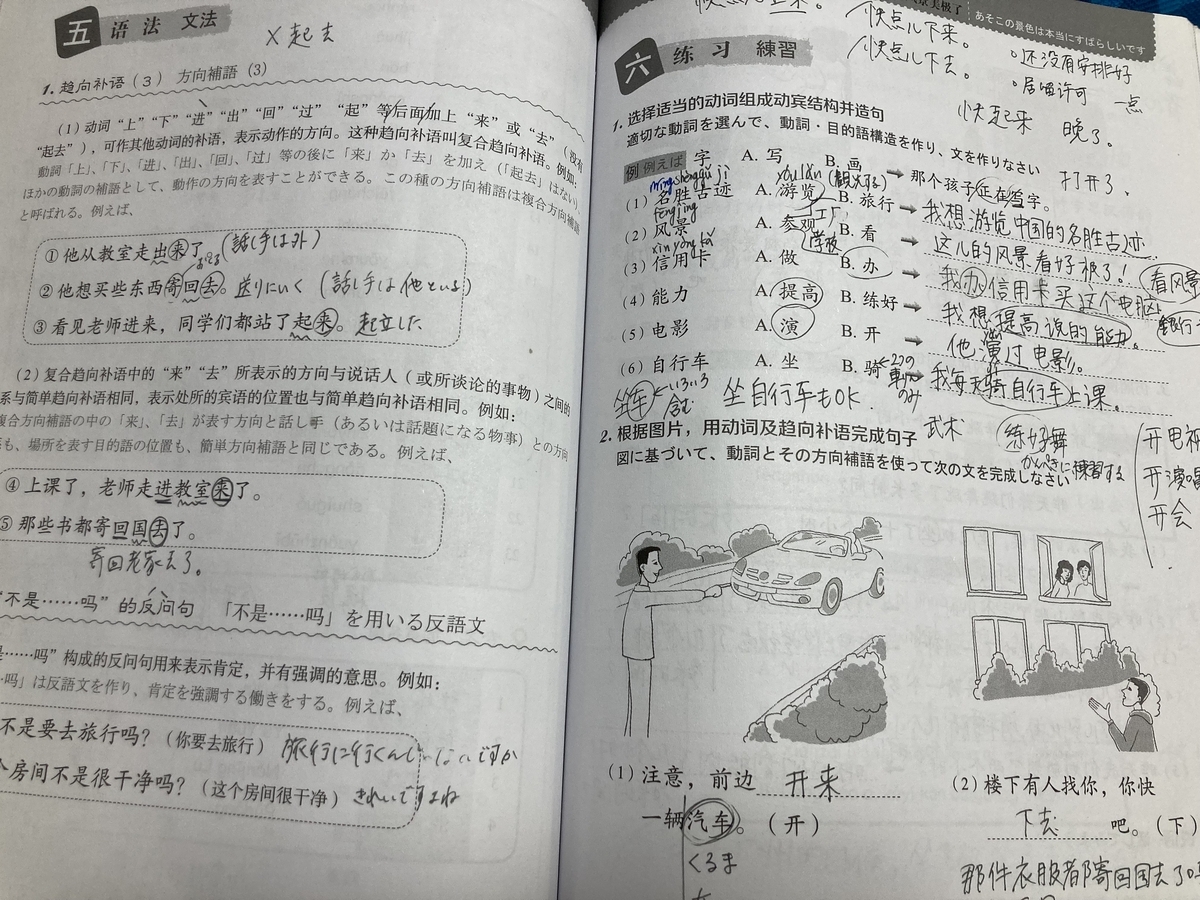 五 语法 文法
×起去
1. 趋向补语(3) 方向補語(3)
(1)动词“上”“下”“进”“出”“回”“过” “起”等后面加上“来”或“去”(没有
“起去”),可作其他动词的补语,表示动作的方向。这种趋向补语叫复合趋向补语。例如:
動詞「上」、「下」、「进」、「出」、「回」、「过」等の後に「来」か「去」を加え(「起去」はない)
ほかの動詞の補語として、動作の方向を表すことができる。この種の方向補語は複合方向補語
と呼ばれる。例えば、
① 他从教室走出来了。(話し手は外)
② 他想买些东西寄回去。送りにいく(話し手は他といる)
おくる
③ 看见老师进来,同学们都站了起来。起立した
(2)复合趋向补语中的“来”“去”所表示的方向与说话人(或所谈论的事物)之间的
系与简单趋向补语相同,表示处所的宾语的位置也与简单趋向补语相同。例如:
複合方向補語の中の「来」、「去」が表す方向と話し手(あるいは話題になる物事)との方向
も、場所を表す目的語の位置も、簡単方向補語と同じである。例えば、
④ 上课了,老师走进教室来了。
⑤ 那些书都寄回国去了。
寄回老家去了。
“不是……吗”的反问句 「不是……吗」を用いる反語文
是……吗”构成的反问句用来表示肯定,并有强调的意思。例如:
…吗」は反語文を作り、肯定を強調する働きをする。例えば、
不是要去旅行吗?(你要去旅行) 旅行に行くんじゃないですか
个房间不是很干净吗?(这个房间很干净) きれいですよね
美极了 あそこの景色は本当にすばらしいです
快点儿上来。
快点儿下来。
快点儿下去。
。还没有安排好
。居留许可 一点
快起来 晚了。
打开了.
六 练习 練習
1. 选择适当的动词组成动宾结构并造句
適切な動詞を選んで、動詞・目的語構造を作り、文を作りなさい
例 例えば 字 A. 写 B. 画 → 那个孩子正在写字。
míng shèng gǔ jì yóu lǎn
(1)名胜古迹 A. 游览 B. 旅行 → 我想游览中国的名胜古迹
fēngjǐng 工厂
(2)风景 A. 参观 B. 看 → 这儿的风景看好极了! 看风景
xìn yòng kǎ 学校
(3)信用卡 A. 做 B. 办 → 我办信用卡买这个电脑 銀行
(4)能力 A. 提高 B. 练好 → 我想提高说的能力。
(5)电影 A. 演 B. 开 → 他演过电影。
(6)自行车 A. 坐 B. 骑 → 我每天骑自行车上课。
2つの車輪のみ
坐车 いろいろ含む 坐自行车もOK
2. 根据图片,用动词及趋向补语完成句子
図に基づいて、動詞とその方向補語を使って次の文を完成しなさい
武术 练好舞
かんぺきに練習する
开电视
开演唱
开会
(1)注意,前边 开来
一辆汽车。(开)
くるま
(2)楼下有人找你,你快
下去 吧。(下)
那件衣服都寄回国去了吗